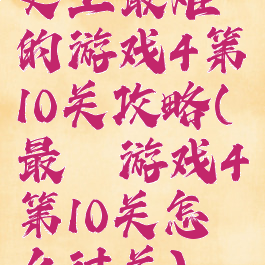 史上最难
的游戏4第
10关攻略(
最 游戏4
第10关怎
么过关)